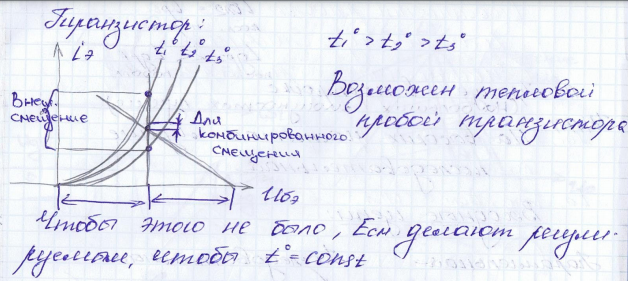 Тиранзистор:
iэ
t₁° t₂° t₃°
t₁° > t₂° > t₃°
Внеш.
смещение
Для
комбинированного
смещения
Возможен тепловой
пробой транзистора
Uбэ
Чтобы этого не было, Есм делают регули-
руемым, чтобы t°=const